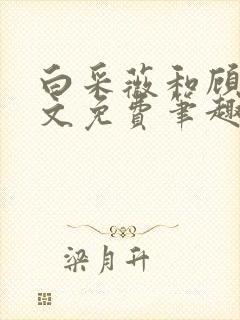 白采薇和顾
文免费笔趣
梁月升